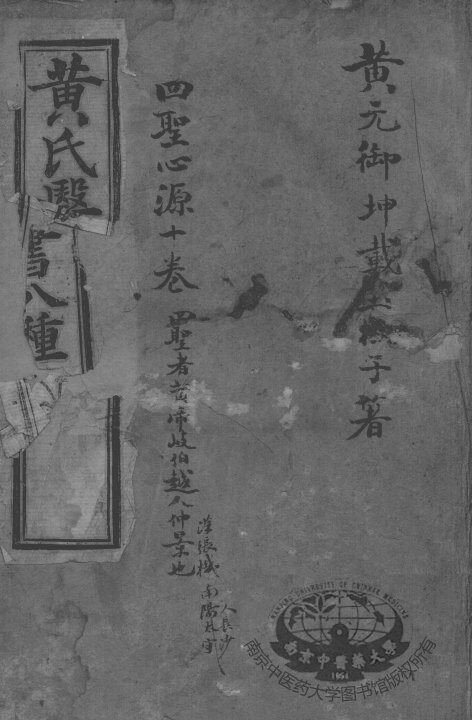 黄元御坤載玉楸子著
四聖心源十卷
四聖者黄帝岐伯越人仲景也
漢張機南陽人長沙太守
黄氏醫書八種
NANJING UNIVERSITY OF CHINESE MEDICINE
南京中醫藥大學
1954
南京中医药大学图书馆版权所有